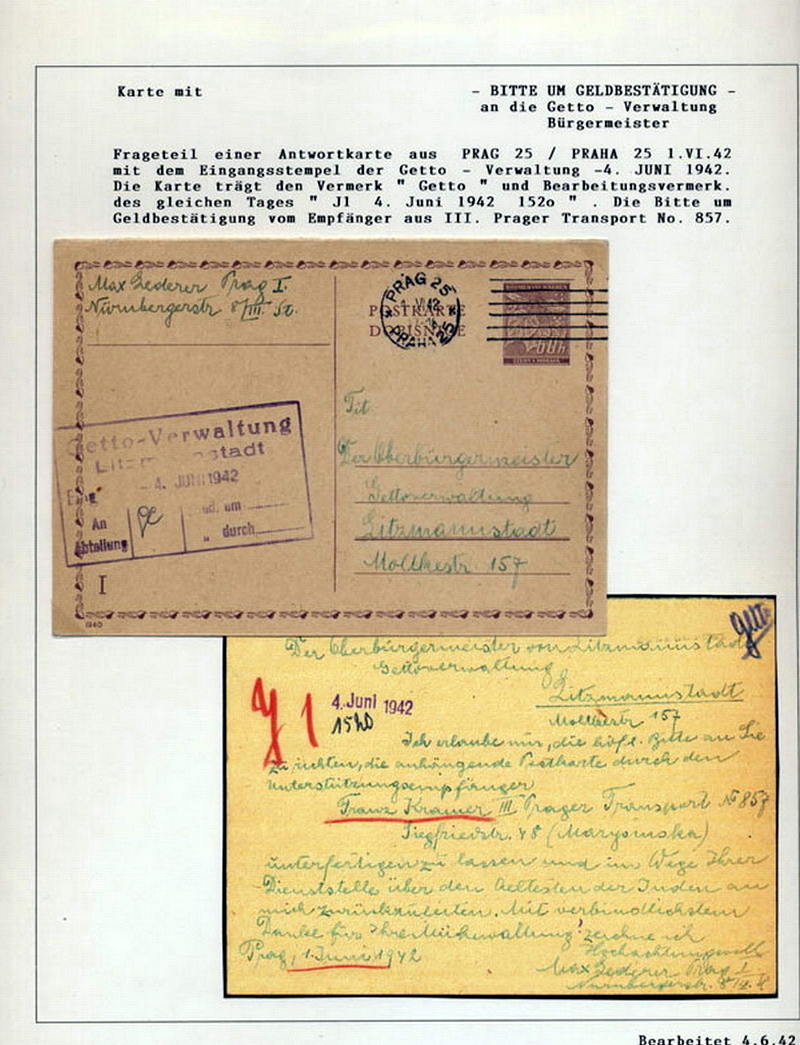 Karte mit
- BITTE UM GELDBESTÄTIGUNG -
an die Getto - Verwaltung
Bürgermeister
Frageteil einer Antwortkarte aus PRAG 25 / PRAHA 25 1.VI.42
mit dem Eingangsstempel der Getto - Verwaltung -4. JUNI 1942.
Die Karte trägt den Vermerk " Getto " und Bearbeitungsvermerk.
des gleichen Tages " J1 4. Juni 1942 152o " . Die Bitte um
Geldbestätigung vom Empfänger aus III. Prager Transport No. 857.
Max Lederer Prag I.
Nürnbergerstr 8/III. St.
PRAG 25
VI 42
PRAHA 25
POSTKARTE
DOPISNICE
60h
Getto-Verwaltung
Litzmannstadt
4. JUNI 1942
An
Abteilung
ed. am
" durch
I
1940
Tit
Der Oberbürgermeister
Gettoverwaltung
Litzmannstadt
Moltkestr. 157
Getto
Der Oberbürgermeister von Litzmannstadt
Gettoverwaltung
Litzmannstadt
Moltkestr 157
J 1
4. Juni 1942
1520
Ich erlaube mir, die höfl. Bitte an Sie
zu richten, die anhängende Postkarte durch den
Unterstützungsempfänger
Franz Kramer III Prager Transport № 857
Siegfriedstr. 48 (Marysinska)
unterfertigen zu lassen und im Wege Ihrer
Dienststelle über den Aeltesten der Juden an
mich zurückzuleiten. Mit verbindlichstem
Danke für Ihre Mühewaltung! zeichne ich
Hochachtungsvoll
Prag, 1. Juni 1942
Max Lederer Prag I
Nürnbergerstr.
Bearbeitet 4.6.42